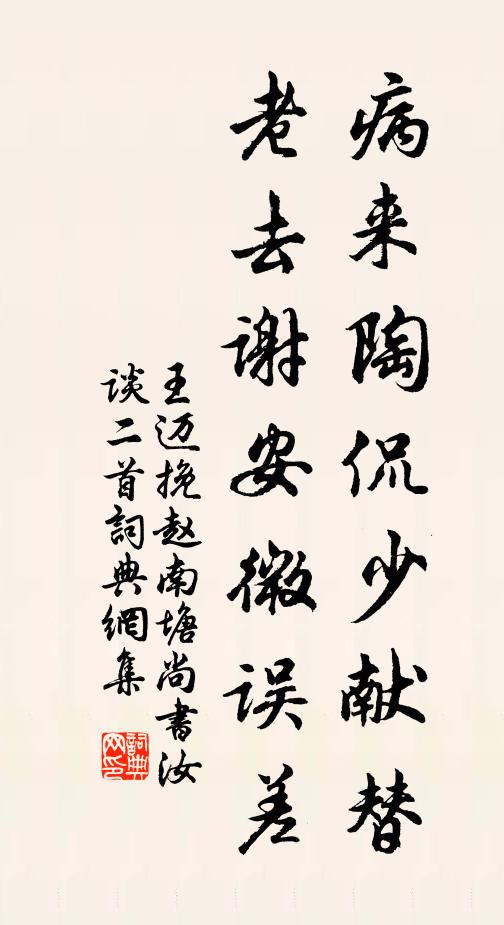 病来陶侃少献替
老去谢安微误差
王迈挽赵南塘尚书汝
谈二首詞典網集
詞典网印